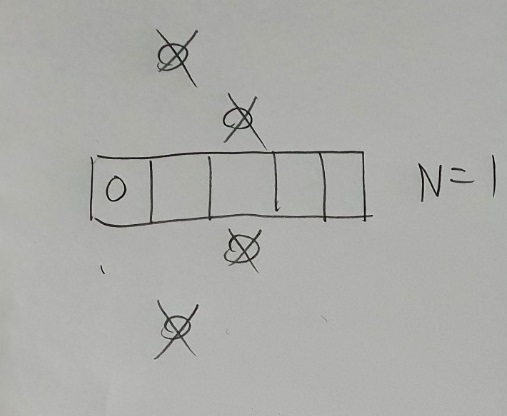 0 N=1